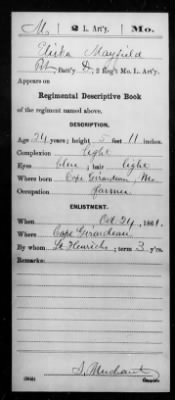 M. 2 L. Art'y. Mo.
Elisha Mayfield
Pvt, Batt'y D, 2 Reg't Mo. L. Art'y.
Appears on
Regimental Descriptive Book
of the regiment named above.
DESCRIPTION.
Age 24 years; height 5 feet 11 inches.
Complexion light
Eyes blue; hair light
Where born Cape Girardeau, Mo
Occupation farmer
ENLISTMENT.
When Oct. 24, 1861.
Where Cape Girardeau
By whom Lt. ; term 3 y'rs.
Remarks:
Copyist.